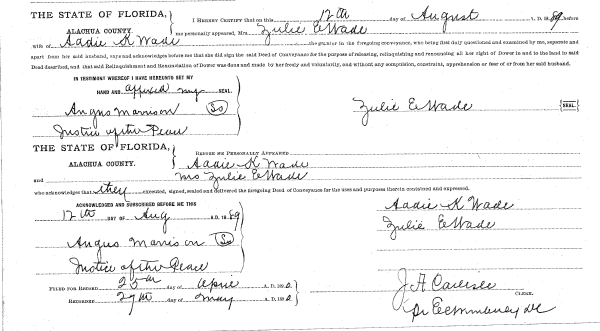 THE STATE OF FLORIDA,
ALACHUA COUNTY.
I HEREBY CERTIFY that on this 12th day of August A. D. 1889, before
me personally appeared, Mrs. Zulie E Wade
wife of Aadie K Wade the grantor in the foregoing conveyance, who being first duly questioned and examined by me, separate and
apart from her said husband, says and acknowledges before me that she did sign the said Deed of Conveyance for the purpose of releasing, relinquishing and renouncing all her right of Dower in and to the land in said
Deed described, and that said Relinquishment and Renunciation of Dower was done and made by her freely and voluntarily, and without any compulsion, constraint, apprehension or fear of or from her said husband.
IN TESTIMONY WHEREOF I HAVE HEREUNTO SET MY
HAND AND affixed my SEAL.
Angus Morrison
Justice of the Peace
Zulie E Wade SEAL.
THE STATE OF FLORIDA,
ALACHUA COUNTY.
BEFORE ME PERSONALLY APPEARED
Aadie K Wade
and Mrs Zulie E Wade
who acknowledges that they executed, signed, sealed and delivered the foregoing Deed of Conveyance for the uses and purposes therein contained and expressed.
ACKNOWLEDGED AND SUBSCRIBED BEFORE ME THIS
12th DAY OF Aug A. D. 1889
Angus Morrison
Justice of the Peace
Aadie K Wade
Zulie E Wade
FILED FOR RECORD 25th day of April A. D. 1890
RECORDED 27th day of May A. D. 1890
J A Carlisle
CLERK.